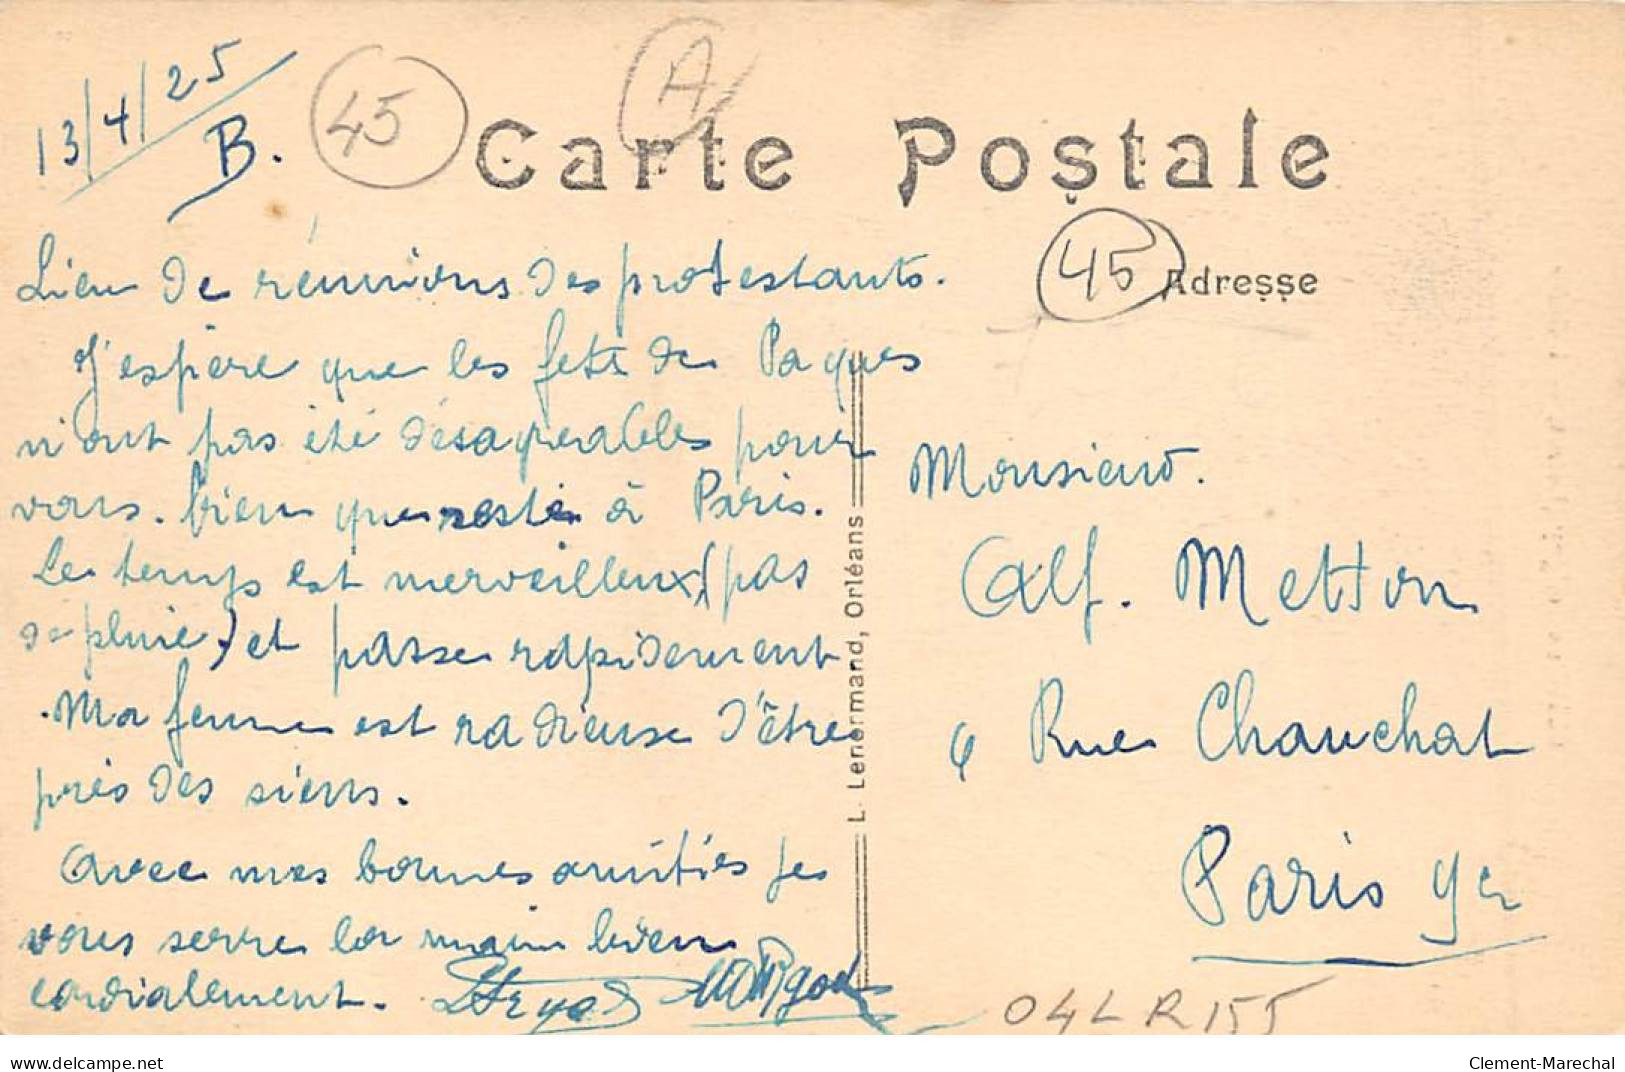 13/4/25
B.
45
A
Carte Postale
45
Adresse
Lieu de réunions des protestants.
J'espère que les fetes de Paques
n'ont pas été désagréables pour
vous. bien que resté à Paris.
Le temps est merveilleux, (pas
de pluie) et passe rapidement
. Ma femme est radieuse d'être
près des siens.
Avec mes bonnes amitiés je
vous serre la main bien
cordialement.
L. Lenormand, Orléans
Monsieur.
Alf. Metton
6 Rue Chauchat
Paris 9e
04LR155
delcampe.net
Clement-Marechal